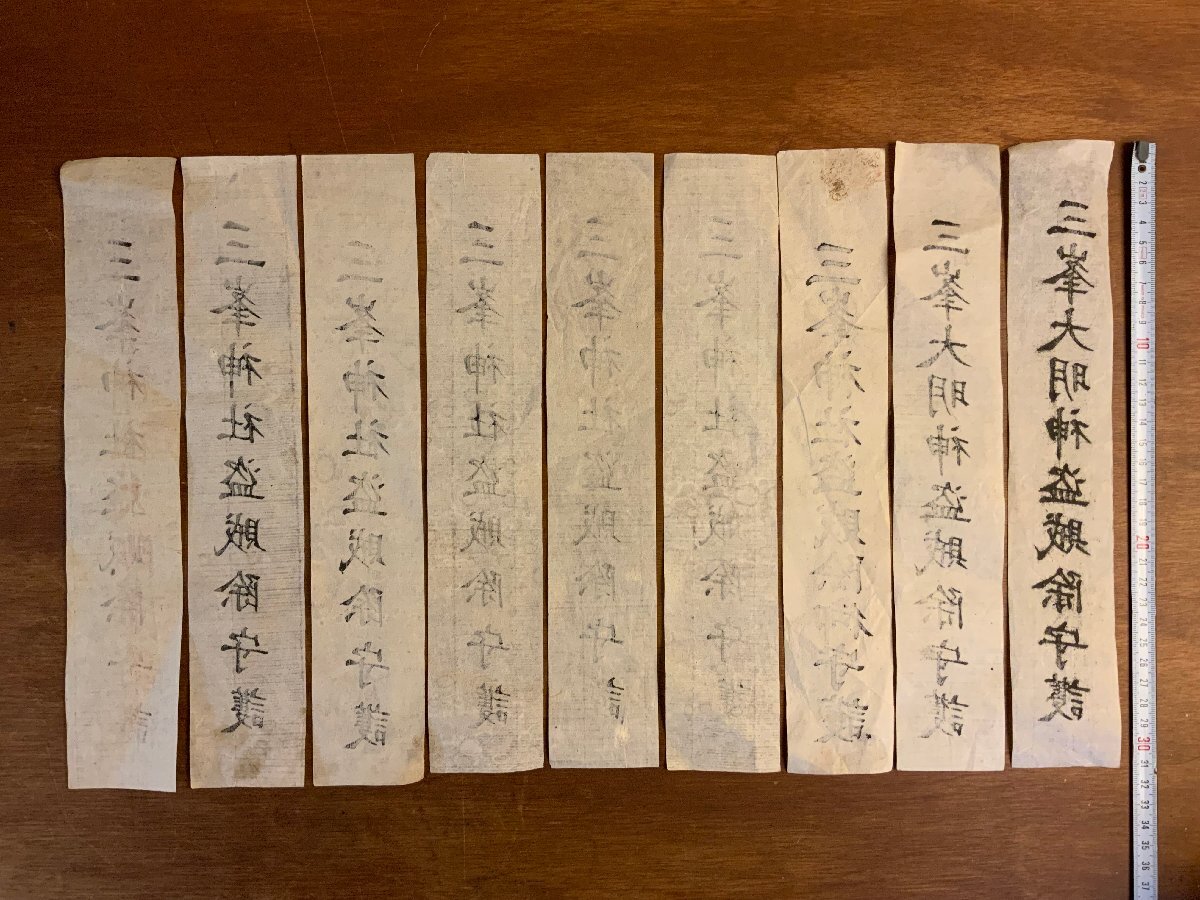 三峯大明神盗賊除守護
三峯大明神盗賊除守護
三峯神社盗賊除御守護
三峯神社盗賊除守護
三峯神社盗賊除守護
三峯神社盗賊除守護
三峯神社盗賊除守護
三峯神社盗賊除守護
三峯神社盗賊除守護
2 3 4 5 6 7 8 9 10 11 12 13 14 15 16 17 18 19 20 21 22 23 24 25 26 27 28 29 30 31 32 33 34 35 36 37